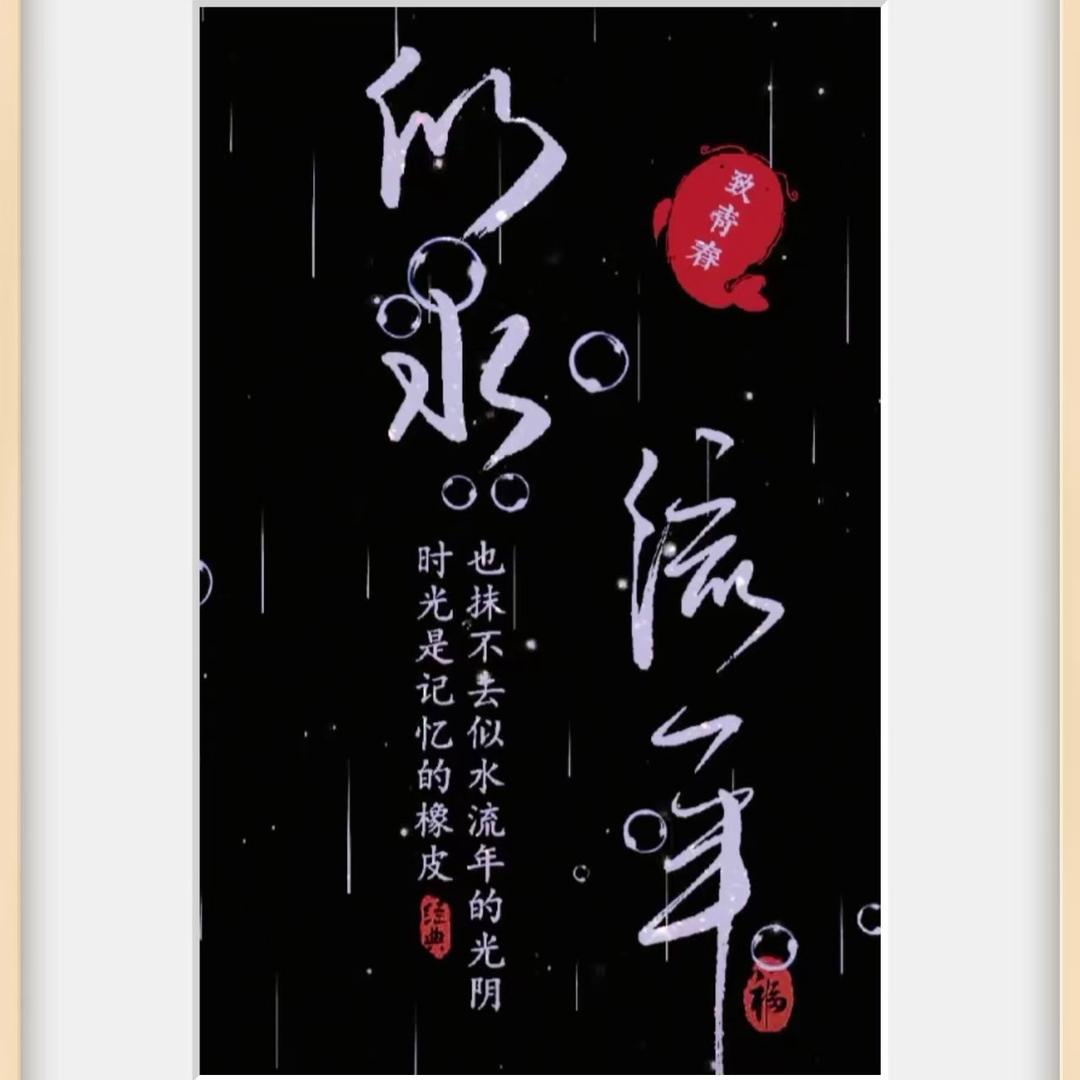 似水
流年
致青春
时光是记忆的橡皮
也抹不去似水流年的光阴
经典
福